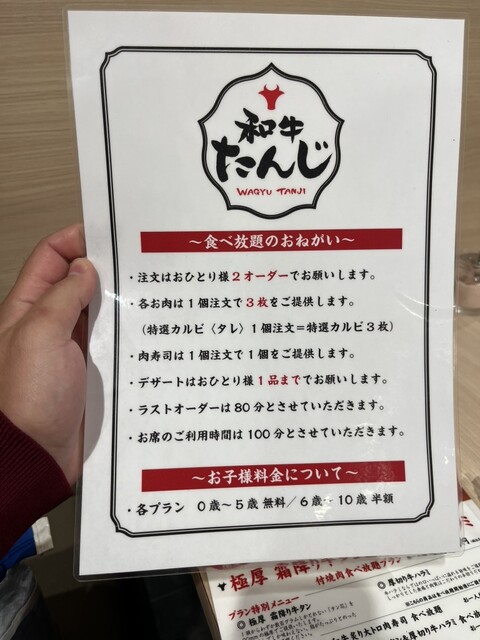 和牛
たんじ
WAGYU TANJI
～食べ放題のおねがい～
・注文はおひとり様2オーダーでお願いします。
・各お肉は1個注文で3枚をご提供します。
（特選カルビ〈タレ〉1個注文＝特選カルビ3枚）
・肉寿司は1個注文で1個をご提供します。
・デザートはおひとり様1品まででお願いします。
・ラストオーダーは80分とさせていただきます。
・お席のご利用時間は100分とさせていただきます。
～お子様料金について～
・各プラン 0歳～5歳 無料／6歳～10歳 半額
極厚 霜降り
付焼肉食べ放題プラン
プラン特別メニュー
◎極厚 霜降り牛タン
◎厚切り牛ハラミ